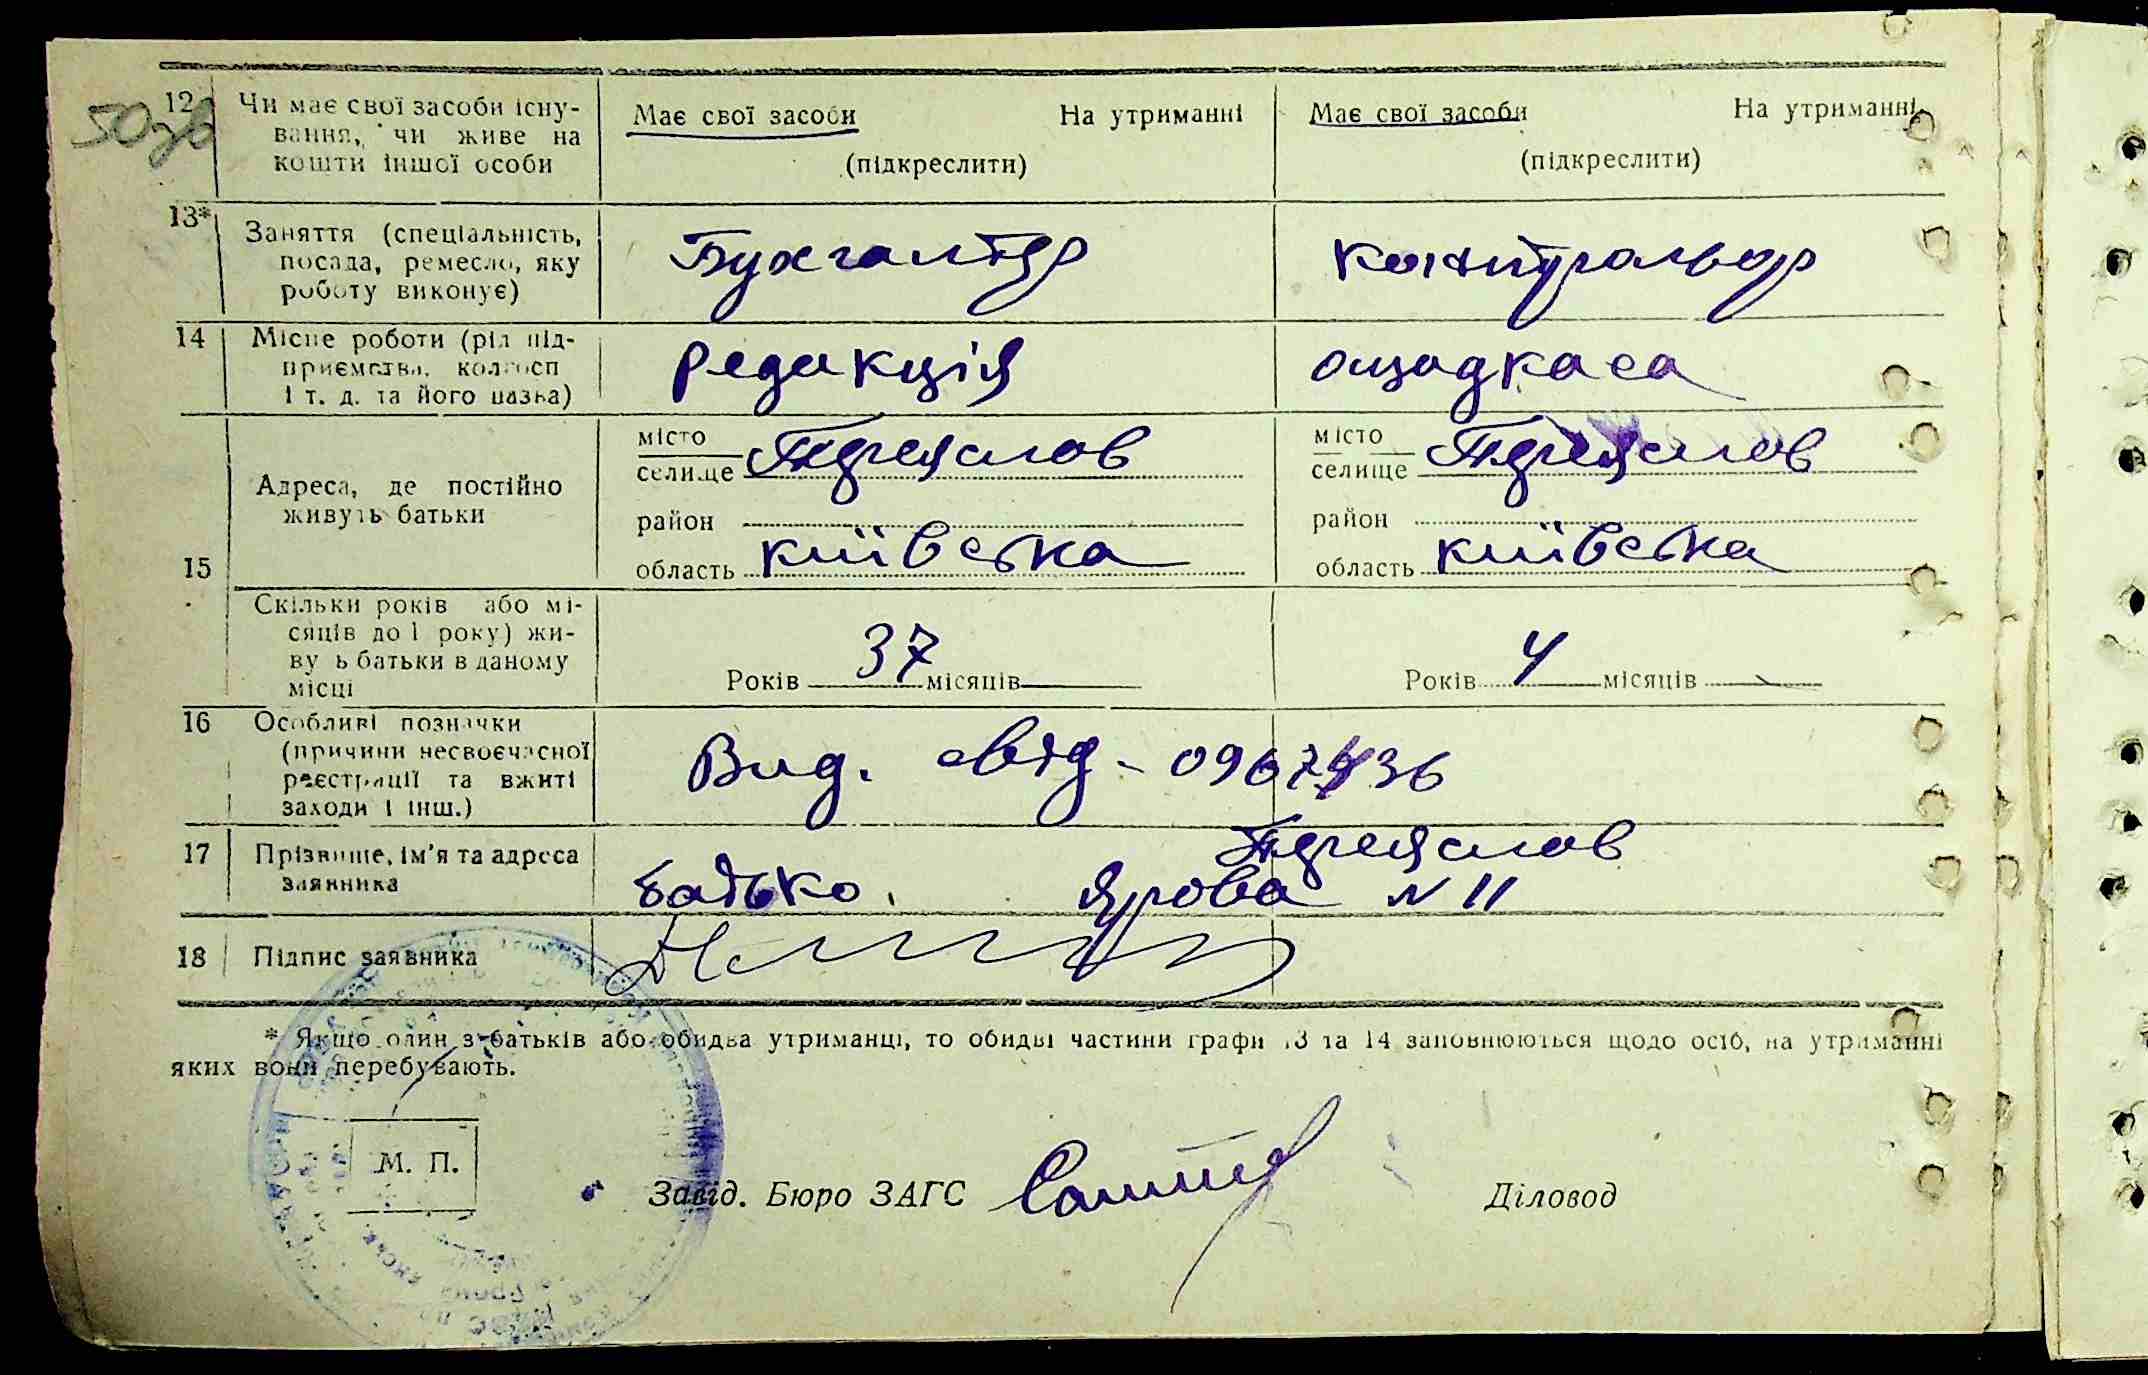 50зв
12 Чи має свої засоби існу-
вання, чи живе на
кошти іншої особи
Має свої засоби На утриманні
(підкреслити)
Має свої засоби На утриманні
(підкреслити)
13* Заняття (спеціальність,
посада, ремесло, яку
роботу виконує)
Бухгалтер
контрольор
14 Місце роботи (рід під-
приємства, колгосп
і т. д. та його назва)
редакція
ощадкаса
15 Адреса, де постійно
живуть батьки
місто
селище Переяслов
район
область київська
місто
селище Переяслов
район
область київська
Скільки років або мі-
сяців до 1 року) жи-
ву ь батьки в даному
місці
Років 37 місяців
Років 4 місяців
16 Особливі позначки
(причини несвоєчасної
реєстрації та вжиті
заходи і інш.)
Вид. свід - 0967436
17 Прізвище, ім'я та адреса
заявника
Переяслов
батько. Ярова N 11
18 Підпис заявника
* Якщо один з батьків або обидва утриманці, то обидві частини графи 13 та 14 заповнюються щодо осіб, на утриманні
яких вони перебувають.
М. П.
Завід. Бюро ЗАГС
Діловод